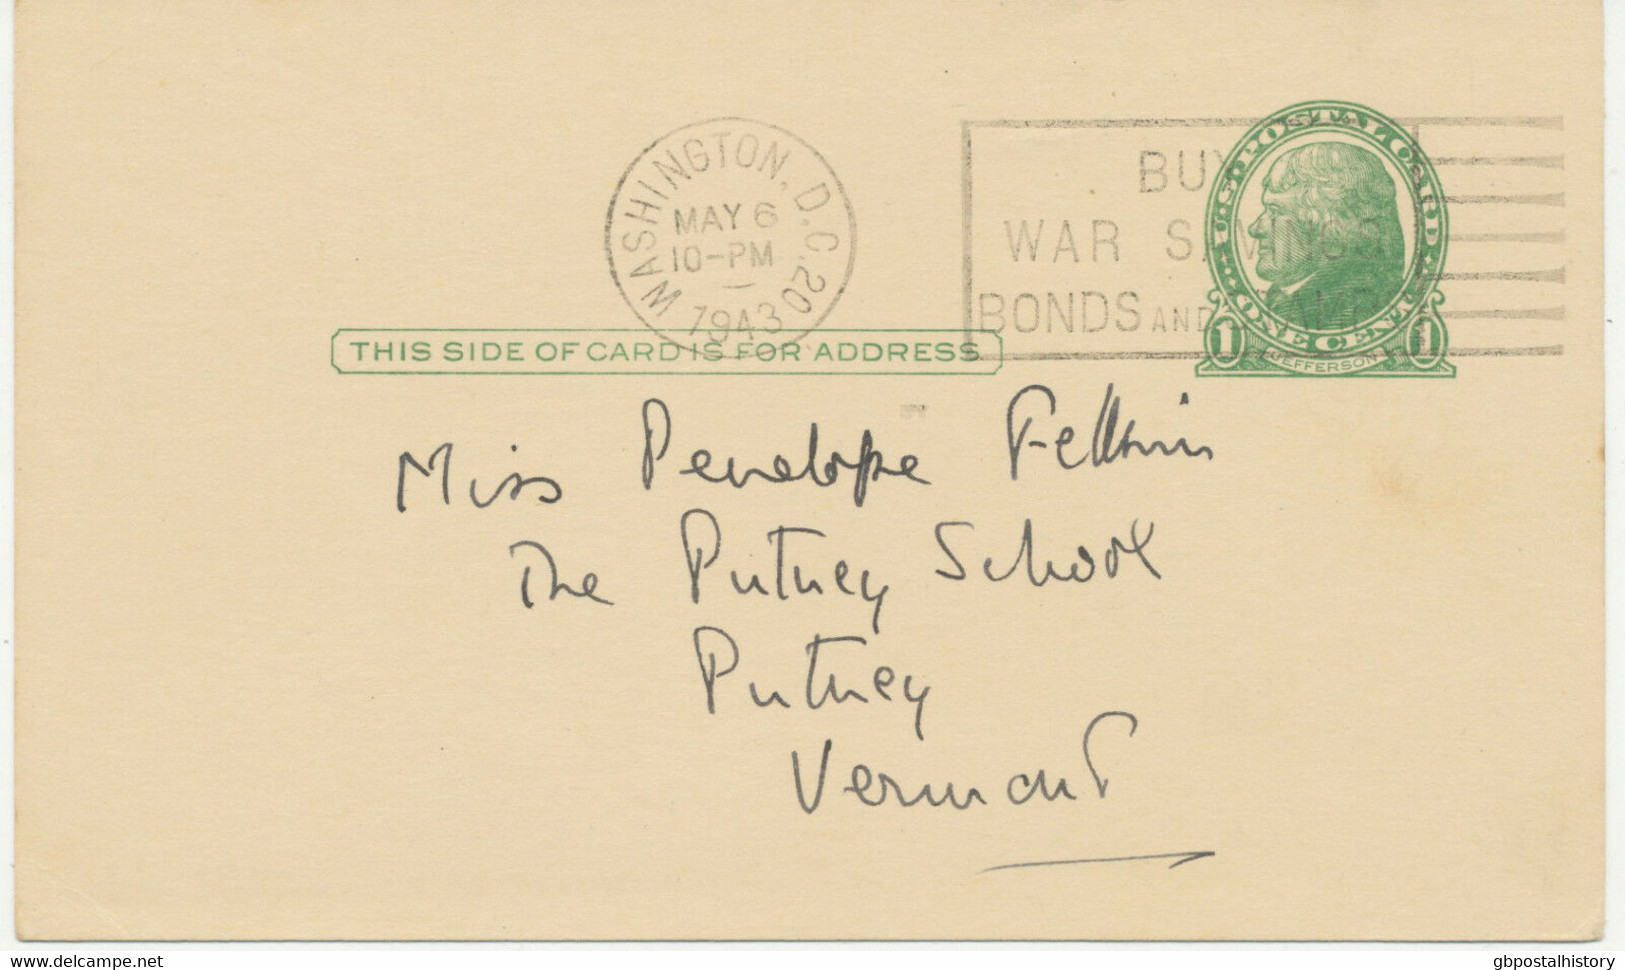 WASHINGTON, D.C. 20
MAY 6
10-PM
1943
BUY
WAR SAVINGS
BONDS AND
U.S. POSTAL CARD
ONE CENT
1 1
JEFFERSON
THIS SIDE OF CARD IS FOR ADDRESS
Miss Penelope
The Putney School
Putney
Vermont
www.delcampe.net
gbpostalhistory